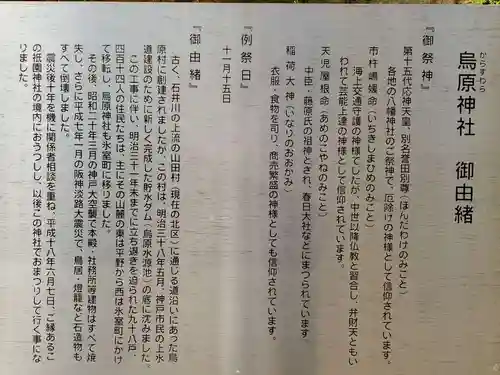 烏原神社　御由緒
からすわら
『御祭神』
第十五代応神天皇、別名誉田別尊（ほんだわけのみこと）
各地の八幡神社のご祭神で、厄除けの神様として信仰されています。
市杵嶋媛命（いちきしまひめのみこと）
海上交通守護の神様でしたが、中世以降仏教と習合し、弁財天ともい
われて芸能上達の神様として信仰されています。
天児屋根命（あめのこやねのみこと）
中臣・藤原氏の祖神とされ、春日大社などにまつられています
稲荷大神（いなりのおおかみ）
衣服・食物を司り、商売繁盛の神様としても信仰されています。
『例祭日』
十一月十五日
『御由緒』
古く、石井川の上流の山田村（現在の北区）に通じる道沿いにあった烏
原村に創建されましたが、この村は、明治三十八年五月、神戸市民の上水
道建設のために新しく完成した貯水ダム（烏原水源池）の底に沈みました。
この工事に伴い、明治三十一年末までに立ち退きを迫られた九十八戸、
四百十四人の住民たちは、主にその山麓の東は平野から西は氷室町にかけ
て移転し、烏原神社も氷室町に移りました。
その後、昭和二十年三月の神戸大空襲で本殿、社務所等建物はすべて焼
失し、さらに平成七年一月の阪神淡路大震災で、鳥居・燈籠など石造物も
すべて倒壊しました。
震災後十年を機に関係者相談を重ね、平成十八年六月七日、ご縁あるこ
の祇園神社の境内におうつしし、以後この神社でおまつりして行く事にな
りました。